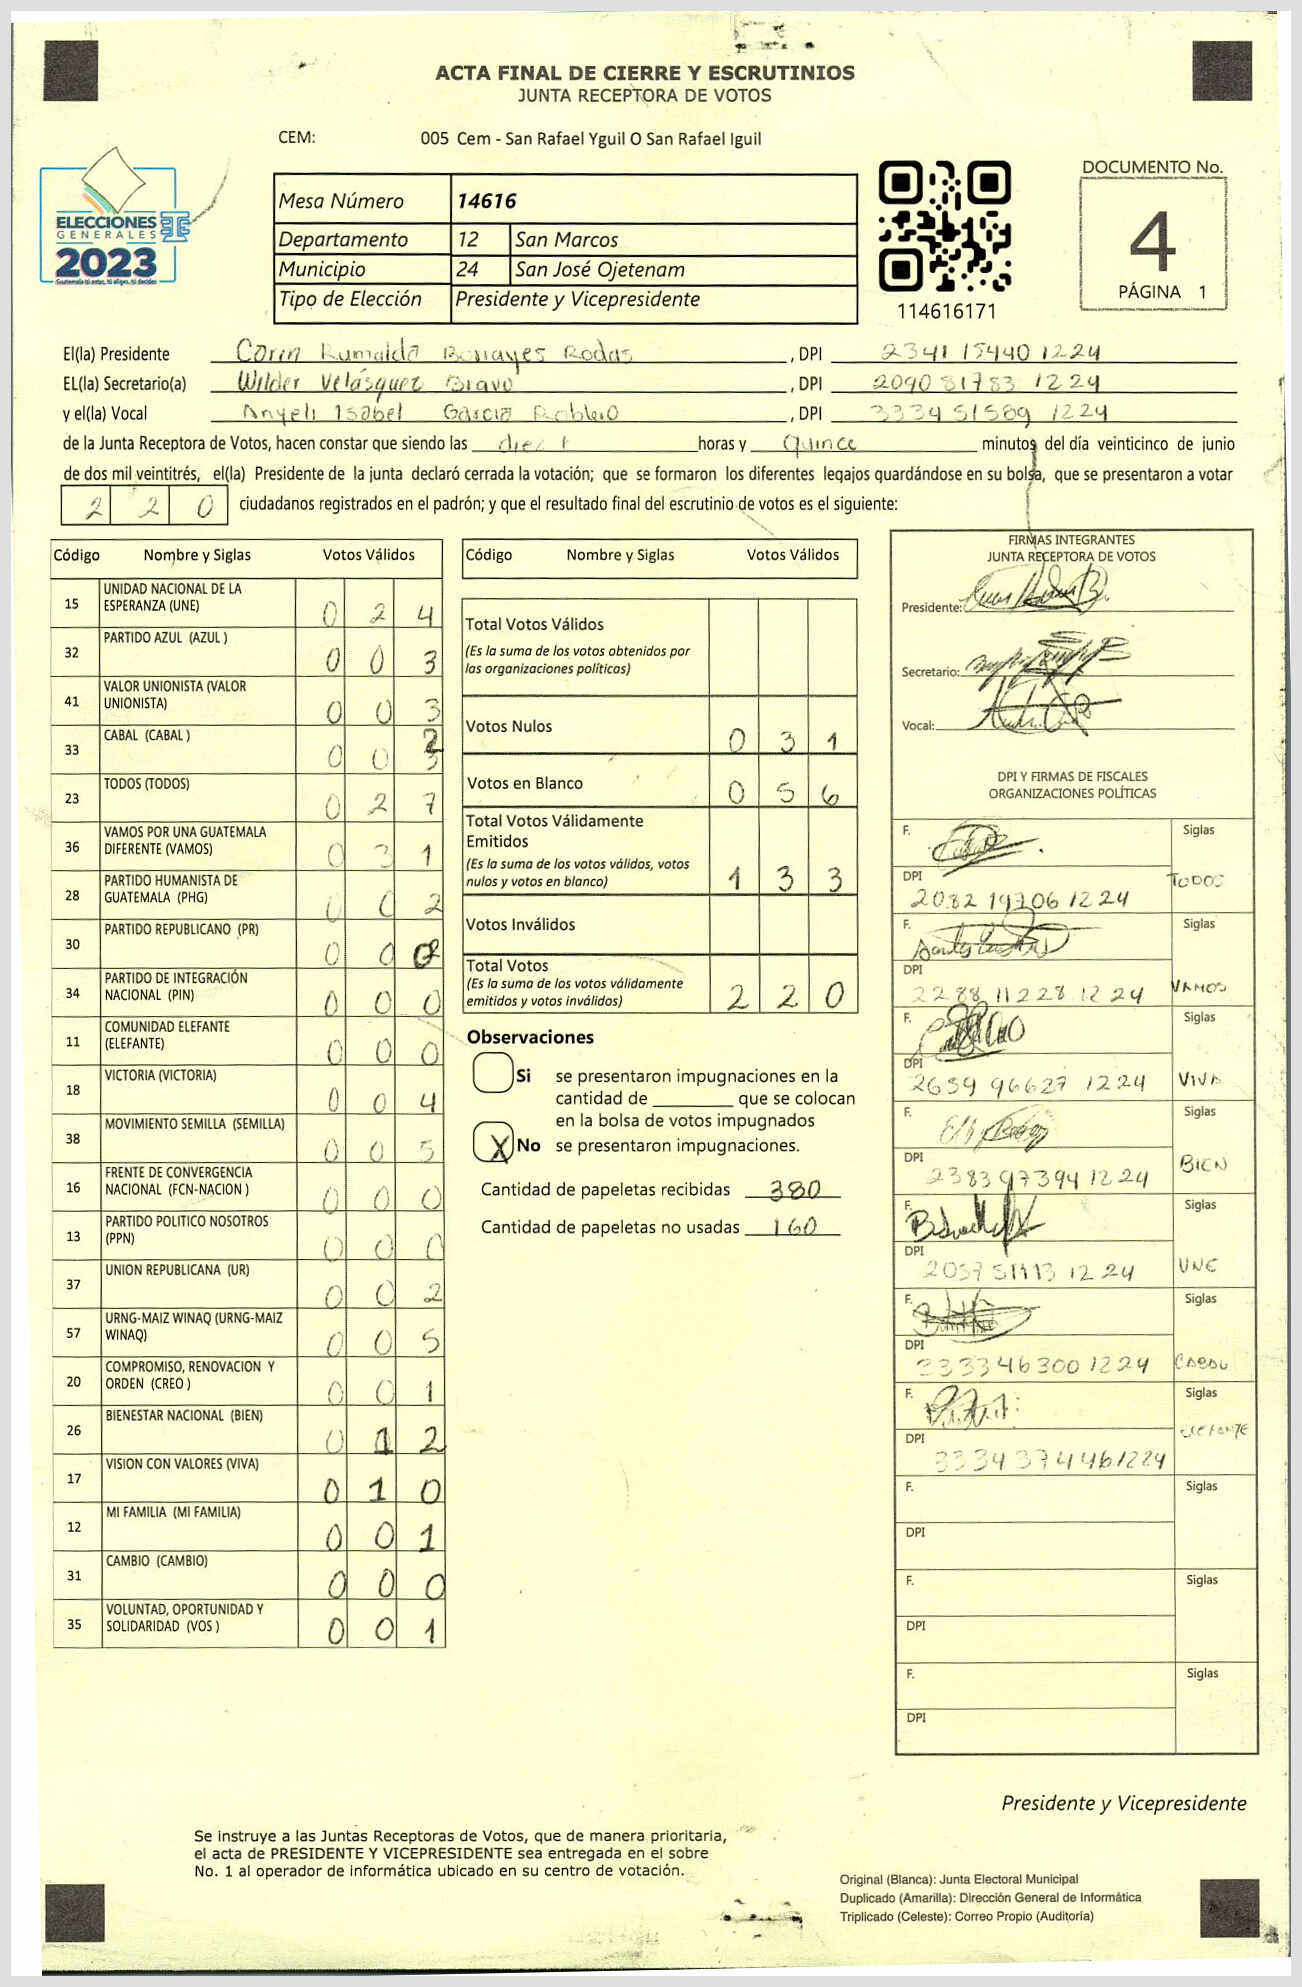 ACTA FINAL DE CIERRE Y ESCRUTINIOS
JUNTA RECEPTORA DE VOTOS
CEM: 005 Cem - San Rafael Yguil O San Rafael Iguil
ELECCIONES
GENERALES
2023
Mesa Número 14616
Departamento 12 San Marcos
Municipio 24 San José Ojetenam
Tipo de Elección Presidente y Vicepresidente
114616171
DOCUMENTO No.
4
PÁGINA 1
El(la) Presidente Rodas , DPI 2341 15440 1224
EL(la) Secretario(a) Wilder Velásquez Bravo , DPI 2090 81783 1224
y el(la) Vocal Isabel García Roblero , DPI 3334 51589 1224
de la Junta Receptora de Votos, hacen constar que siendo las horas y Quince minutos del día veinticinco de junio
de dos mil veintitrés, el(la) Presidente de la junta declaró cerrada la votación; que se formaron los diferentes legajos guardándose en su bolsa, que se presentaron a votar
2 2 0 ciudadanos registrados en el padrón; y que el resultado final del escrutinio de votos es el siguiente:
Código Nombre y Siglas Votos Válidos
15 UNIDAD NACIONAL DE LA
ESPERANZA (UNE) 0 2 4
32 PARTIDO AZUL (AZUL ) 0 0 3
41 VALOR UNIONISTA (VALOR
UNIONISTA) 0 0 3
33 CABAL (CABAL ) 0 0
23 TODOS (TODOS) 0 2 7
36 VAMOS POR UNA GUATEMALA
DIFERENTE (VAMOS) 0 3 1
28 PARTIDO HUMANISTA DE
GUATEMALA (PHG) 0 0 2
30 PARTIDO REPUBLICANO (PR) 0 0
34 PARTIDO DE INTEGRACIÓN
NACIONAL (PIN) 0 0 0
11 COMUNIDAD ELEFANTE
(ELEFANTE) 0 0 0
18 VICTORIA (VICTORIA) 0 0 4
38 MOVIMIENTO SEMILLA (SEMILLA) 0 0 5
16 FRENTE DE CONVERGENCIA
NACIONAL (FCN-NACION ) 0 0 0
13 PARTIDO POLITICO NOSOTROS
(PPN) 0 0 0
37 UNION REPUBLICANA (UR) 0 0 2
57 URNG-MAIZ WINAQ (URNG-MAIZ
WINAQ) 0 0 5
20 COMPROMISO, RENOVACION Y
ORDEN (CREO ) 0 0 1
26 BIENESTAR NACIONAL (BIEN) 0 1 2
17 VISION CON VALORES (VIVA) 0 1 0
12 MI FAMILIA (MI FAMILIA) 0 0 1
31 CAMBIO (CAMBIO) 0 0 0
35 VOLUNTAD, OPORTUNIDAD Y
SOLIDARIDAD (VOS ) 0 0 1
Código Nombre y Siglas Votos Válidos
Total Votos Válidos
(Es la suma de los votos obtenidos por
las organizaciones políticas)
Votos Nulos 0 3 1
Votos en Blanco 0 5 6
Total Votos Válidamente
Emitidos
(Es la suma de los votos válidos, votos
nulos y votos en blanco) 1 3 3
Votos Inválidos
Total Votos
(Es la suma de los votos válidamente
emitidos y votos inválidos) 2 2 0
Observaciones
Si se presentaron impugnaciones en la
cantidad de ________ que se colocan
en la bolsa de votos impugnados
X No se presentaron impugnaciones.
Cantidad de papeletas recibidas 380
Cantidad de papeletas no usadas 160
FIRMAS INTEGRANTES
JUNTA RECEPTORA DE VOTOS
Presidente:
Secretario:
Vocal:
DPI Y FIRMAS DE FISCALES
ORGANIZACIONES POLÍTICAS
F. Siglas
DPI TODOS
2082 19706 1224
F. Siglas
DPI VAMOS
2288 11228 1224
F. Siglas
DPI VIVA
2659 96627 1224
F. Siglas
DPI BIEN
2383 97394 1224
F. Siglas
DPI UNE
1224
F. Siglas
DPI
3333 46300 1224
F. Siglas
DPI ELEFANTE
3334 37446 1224
F. Siglas
DPI
F. Siglas
DPI
F. Siglas
DPI
Presidente y Vicepresidente
Se instruye a las Juntas Receptoras de Votos, que de manera prioritaria,
el acta de PRESIDENTE Y VICEPRESIDENTE sea entregada en el sobre
No. 1 al operador de informática ubicado en su centro de votación.
Original (Blanca): Junta Electoral Municipal
Duplicado (Amarilla): Dirección General de Informática
Triplicado (Celeste): Correo Propio (Auditoría)